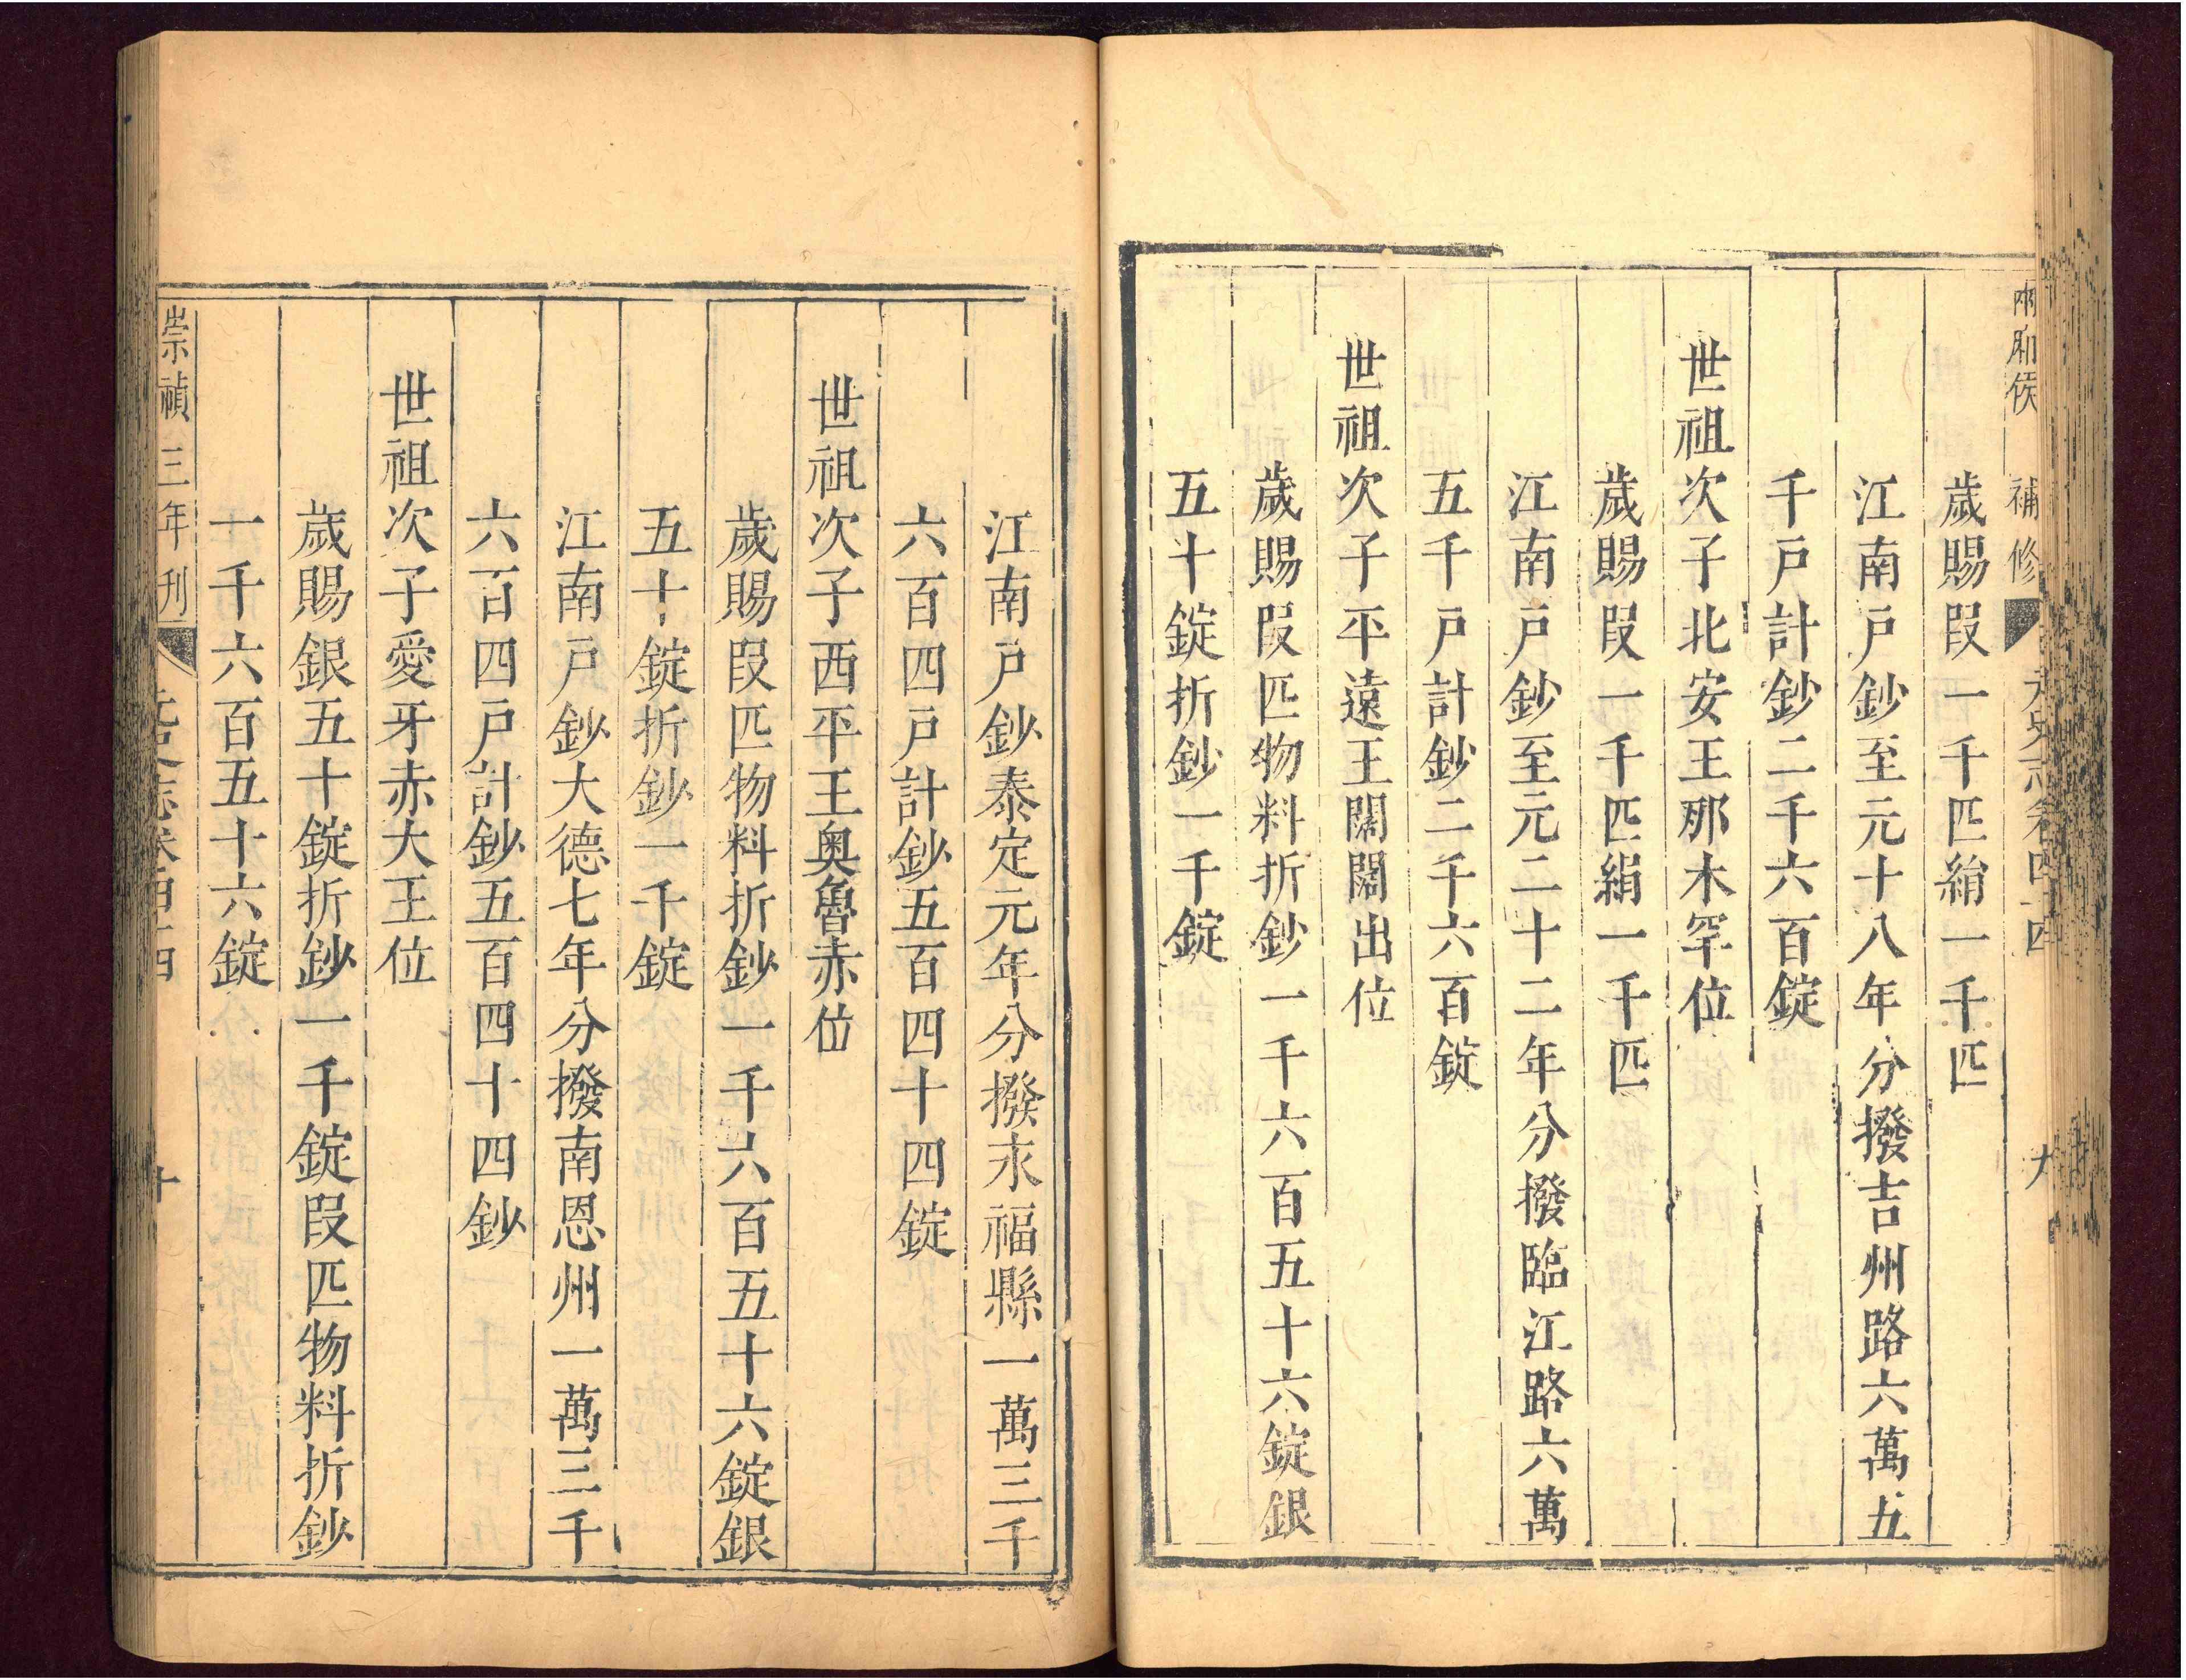 補修
歲賜段一千匹絹一千匹
江南戶鈔至元十八年分撥吉州路六萬五
千戶計鈔二千六百錠
世祖次子北安王那木罕位
歲賜段一千匹絹一千匹
江南戶鈔至元二十二年分撥臨江路六萬
五千戶計鈔二千六百錠
世祖次子平遠王闊闊出位
歲賜段匹物料折鈔一千六百五十六錠銀
五十錠折鈔一千錠
江南戶鈔泰定元年分撥永福縣一萬三千
六百四戶計鈔五百四十四錠
世祖次子西平王奧魯赤位
歲賜段匹物料折鈔一千六百五十六錠銀
五十錠折鈔一千錠
江南戶鈔大德七年分撥南恩州一萬三千
六百四戶計鈔五百四十四鈔
世祖次子愛牙赤大王位
歲賜銀五十錠折鈔一千錠段匹物料折鈔
一千六百五十六錠
崇禎三年刊